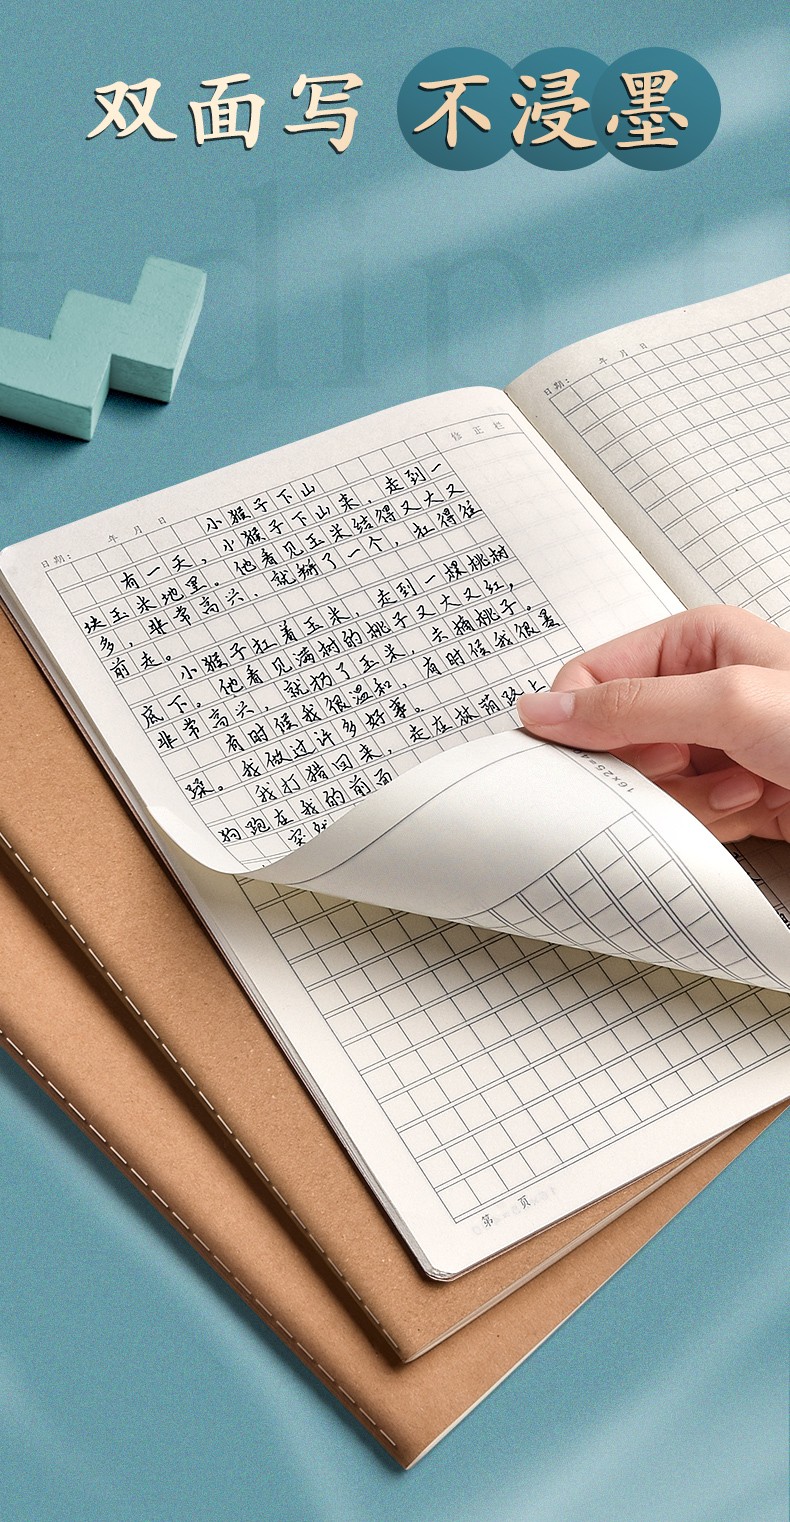 双面写 不浸墨
日期: 年 月 日
修 正 栏
日期: 年 月 日
小猴子下山
有一天，小猴子下山来，走到一
块玉米地里。他看见玉米结得又大又
多，非常高兴，就掰了一个，扛得往
前走。
小猴子扛着玉米，走到一棵桃树
底下。他看见满树的桃子又大又红，
非常高兴，就扔了玉米，去摘桃子。
有时候我很温和，有时候我很暴
躁。我做过许多好事。
我打猎回来，走在林荫路上
狗跑在我的前面
突然
16x25=4
第 页